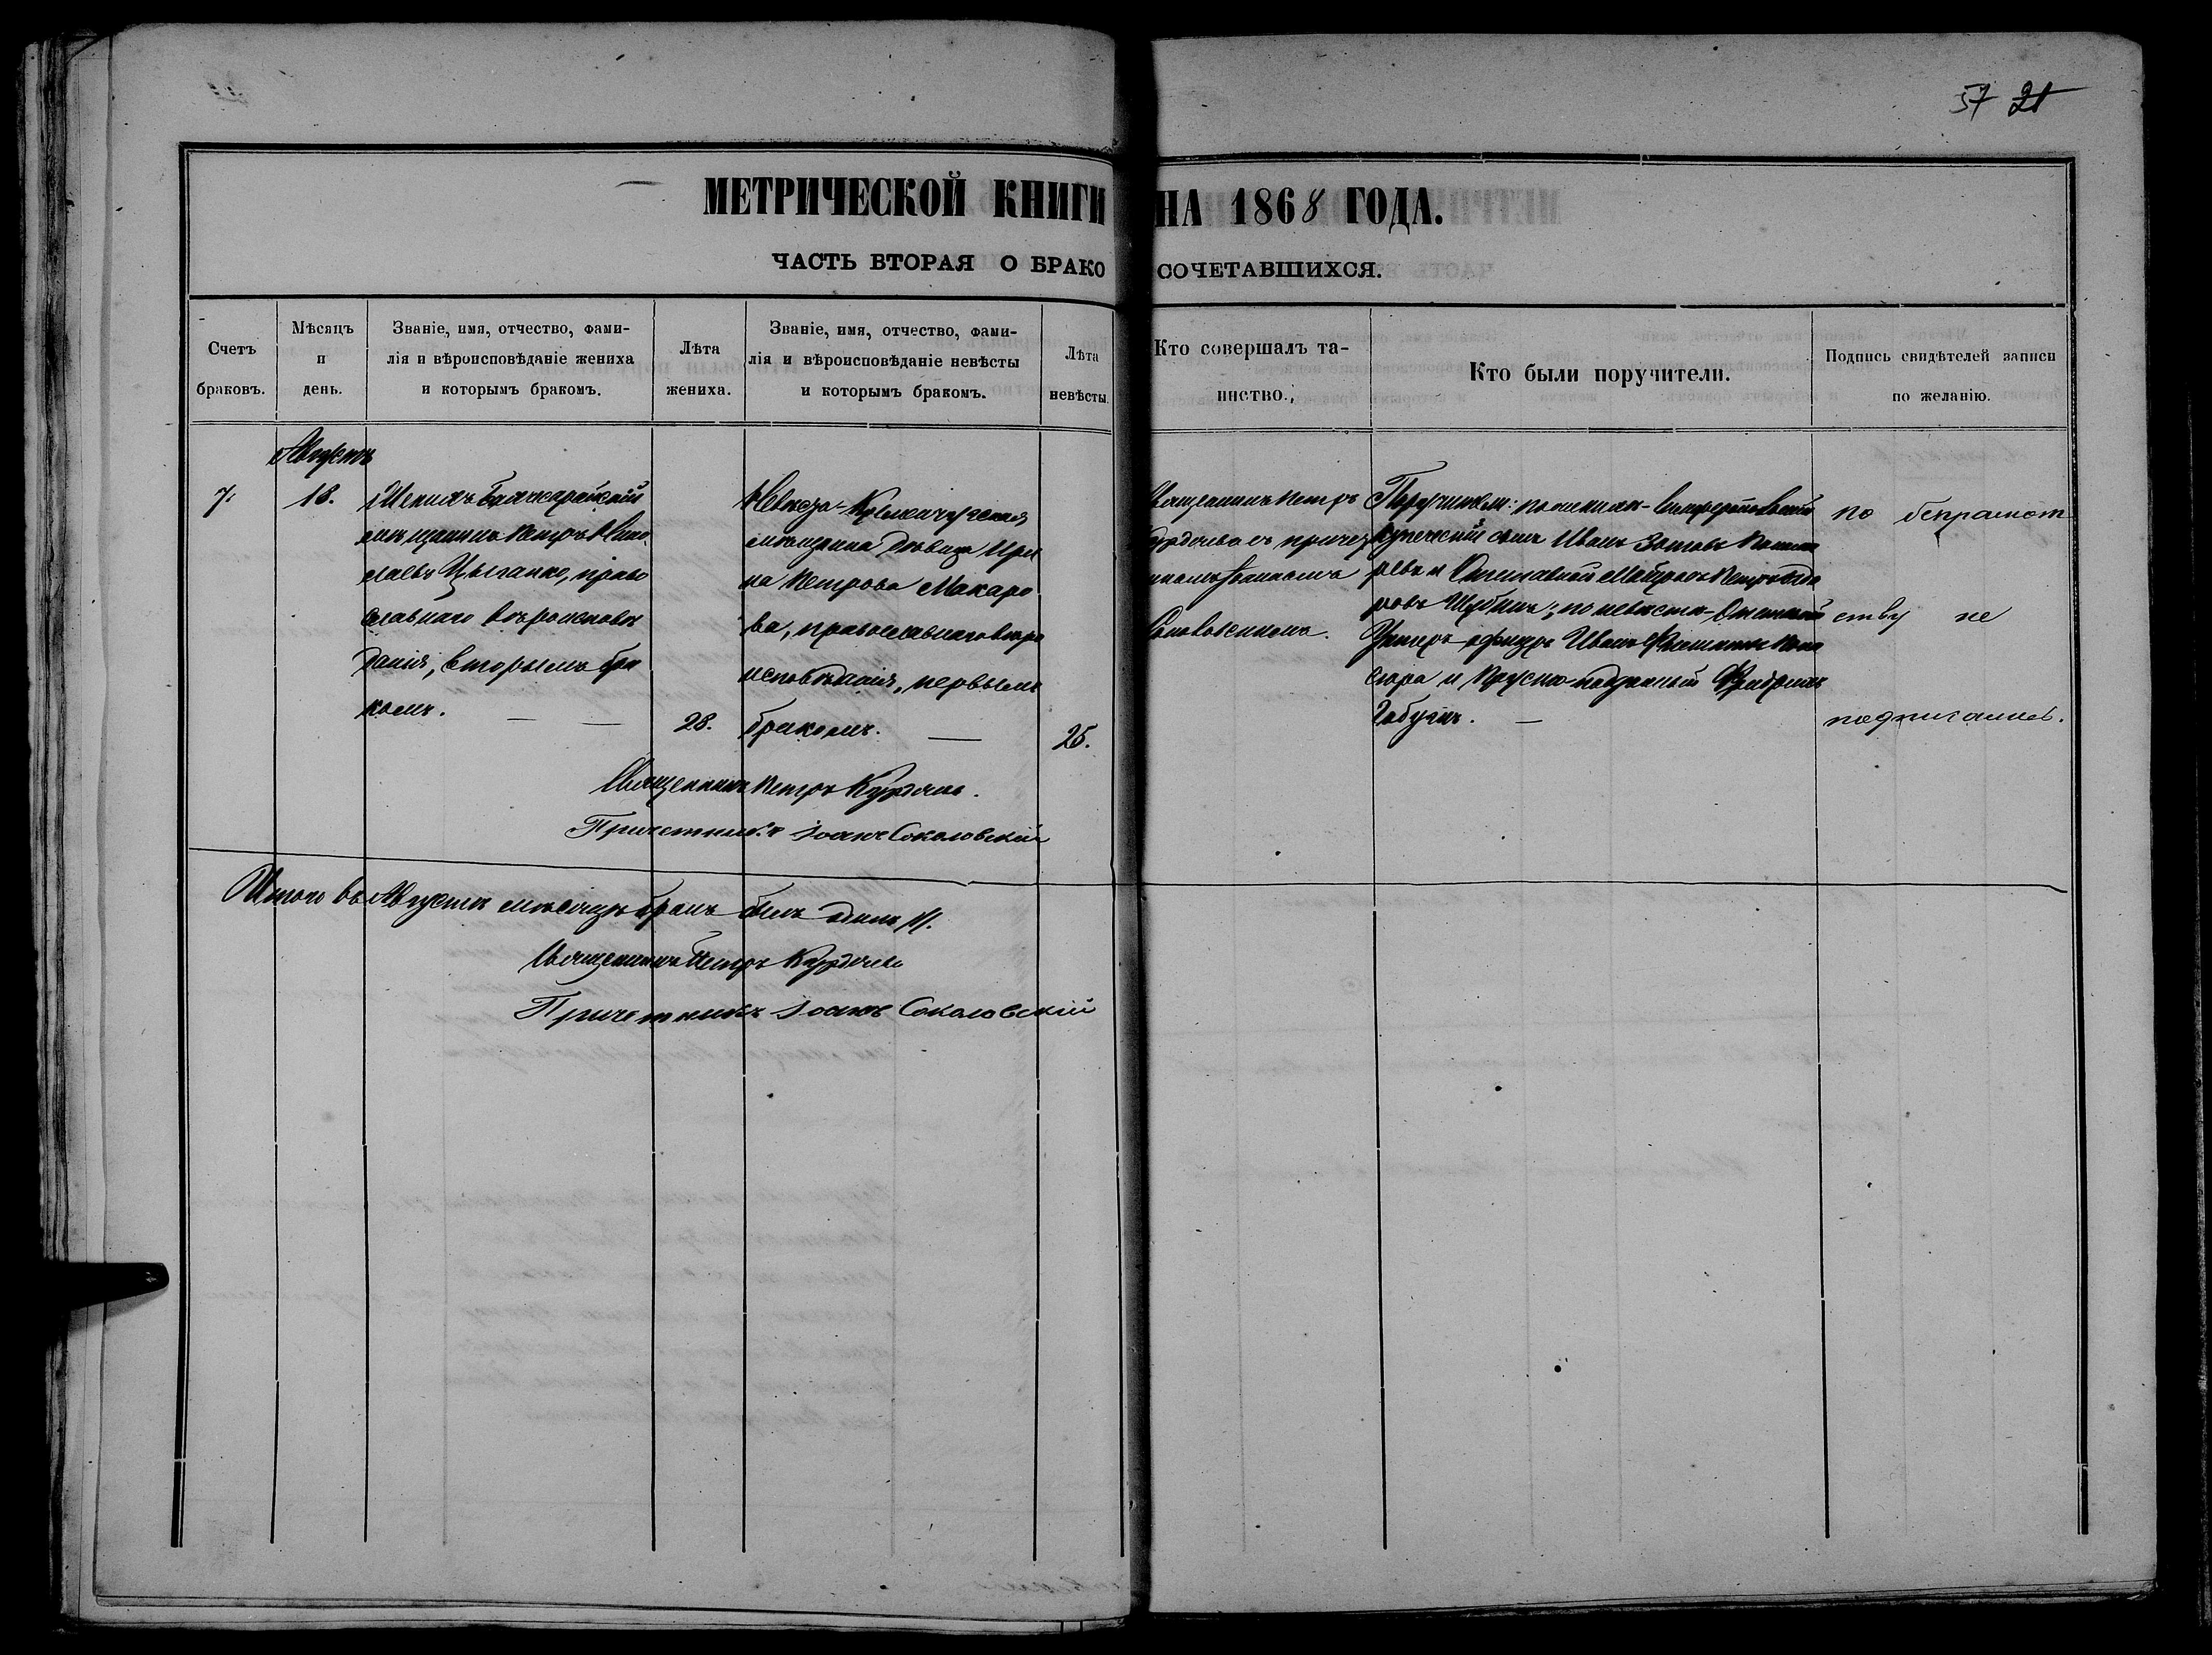 57 21
МЕТРИЧЕСКОЙ КНИГИ НА 1868 ГОДА.
ЧАСТЬ ВТОРАЯ О БРАКОСОЧЕТАВШИХСЯ.
Счетъ браковъ.
Мѣсяцъ и день.
Званіе, имя, отчество, фами-
лія и вѣроисповѣданіе жениха
и которымъ бракомъ.
Лѣта жениха.
Званіе, имя, отчество, фами-
лія и вѣроисповѣданіе невѣсты
и которымъ бракомъ.
Лѣта невѣсты.
Кто совершалъ та-
инство.
Кто были поручители.
Подпись свидѣтелей записи
по желанію.
Августъ
7.
18.
Женихъ Бахчисарайскій
мѣщанинъ Петръ
Цыганко, право
славнаго вѣроисповѣ
данія, вторымъ бра
комъ.
28.
Невѣста - Кременчугская
мѣщанка дѣвица Ири
на Петрова Макаро
ва, православнаго вѣро
исповѣданія, первымъ
бракомъ.
25.
Священникъ Петръ
съ причет
никомъ Іоанномъ
Соколовскимъ.
Поручители: по женихѣ - Симферопольскій
купеческій сынъ Иванъ Зотовъ
ревъ и Отставной Петръ
ровъ Шубинъ; по невѣстѣ - Отставной
Унтеръ офицеръ Иванъ
сюра и Прусско-подданный Фридрихъ
по безграмот
ству не
подписались.
Священникъ Петръ
Причетникъ Іоаннъ Соколовскій
Итого въ Августѣ мѣсяцѣ бракъ былъ одинъ /1/.
Священникъ Петръ
Причетникъ Іоаннъ Соколовскій